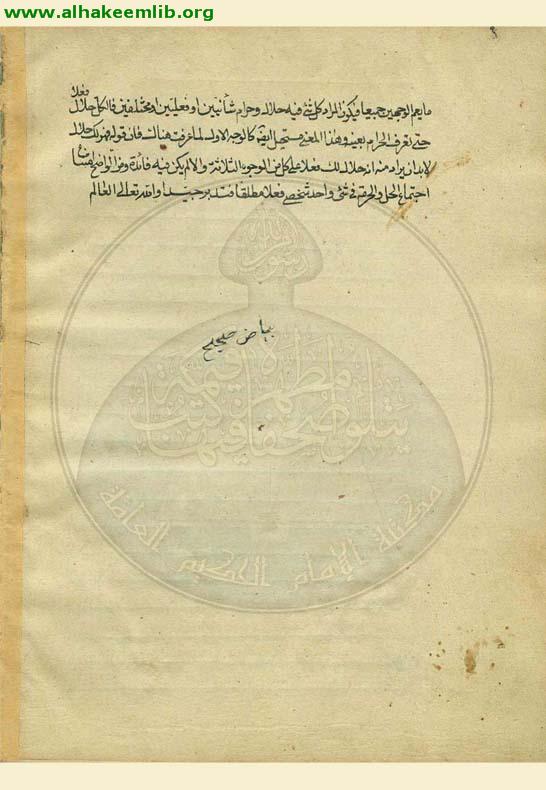 www.alhakeemlib.org
ما يعم الوجهين جميعا فيكون المراد كل شئ فيه حلال وحرام شأنيين او فعليين او مختلفين فالكل حلال فعلا
حتى تعرف الحرام بعينه وهذا المعنى مستحيل البتة كالوجه الاول لما عرفت هناك فان قوله فهو لك حلال
لابد ان يراد منه انه حلال لك فعلا على كل من الوجوه الثلاثة والا لم يكن فيه فائدة ومن الواضح امتناع
اجتماع الحل والحرمة في شئ واحد شخصي فعلا مطلقا فتدبر جيدا والله تعالى العالم
بياض صحيح
رسول من الله
يتلو صحفا مطهرة فيها كتب قيمة
مكتبة الإمام الحكيم العامة